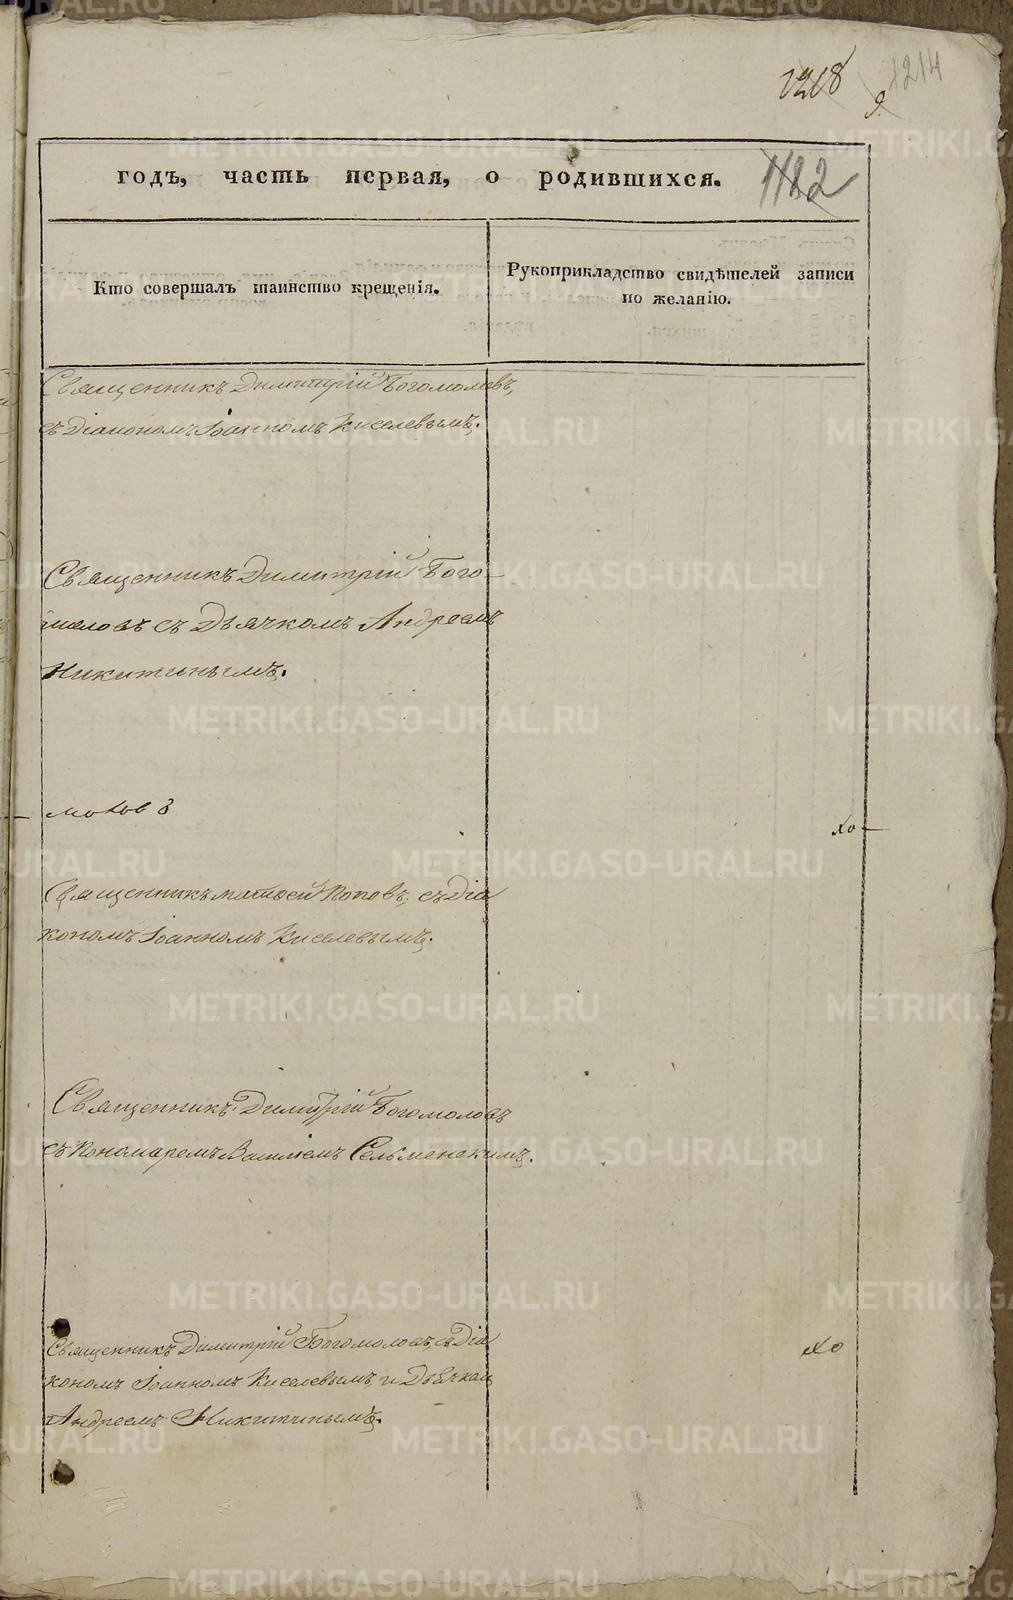 1218
1214
9.
1182
годъ, часть первая, о родившихся.
Кто совершалъ таинство крещенія.
Рукоприкладство свидѣтелей записи
по желанію.
Священникъ Димитрій Богомоловъ,
съ Діакономъ Іоанномъ Киселевымъ.
Священникъ Димитрій Бого-
моловъ съ Дьячкомъ Андреемъ
Никитинымъ.
Священникъ Матѳей Поповъ, съ Діа
кономъ Іоанномъ Киселевымъ.
Священникъ Димитрій Богомоловъ
съ Пономаремъ Василіемъ Сельменскимъ.
Священникъ Димитрій Богомоловъ, съ Діа
кономъ Іоанномъ Киселевымъ, и Дьячком
Андреемъ Никитинымъ.
METRIKI.GASO-URAL.RU